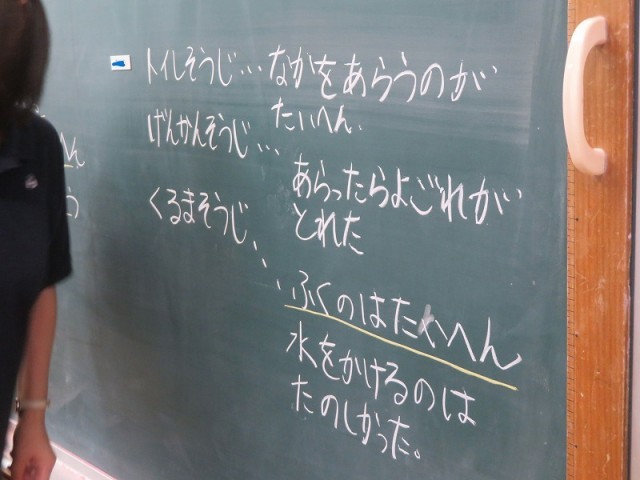 トイレそうじ…なかをあらうのが
たいへん、
げんかんそうじ…
あらったらよごれが
とれた
くるまそうじ…
ふくのはたいへん
水をかけるのは
たのしかった。